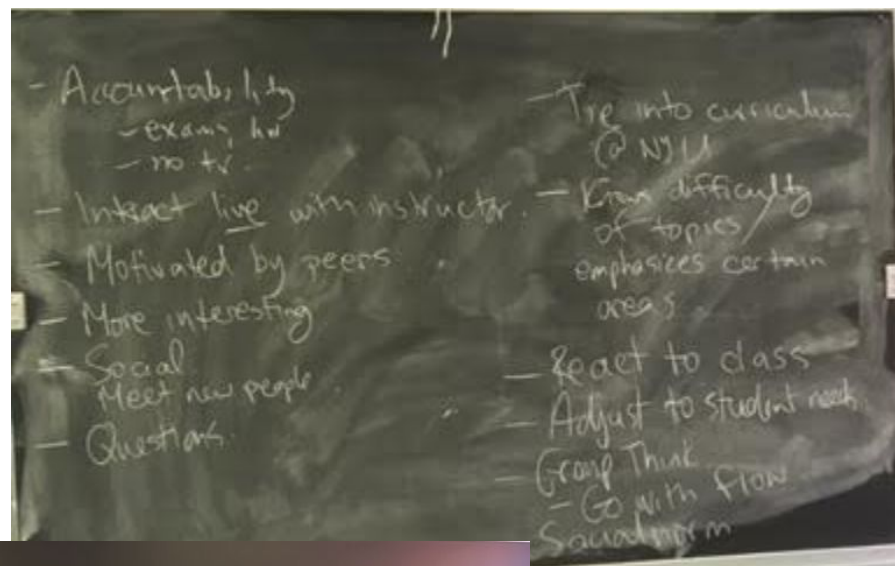 - Accountability
- exams, hw
- no tv
- Interact live with instructor.
- Motivated by peers
- More interesting
- Social
Meet new people
- Questions
- Tie into curriculum
@ NYU
- Know difficulty
of topics /
emphasizes certain
areas
- React to class
- Adjust to student needs
- Group Think
- Go with flow
Social norm